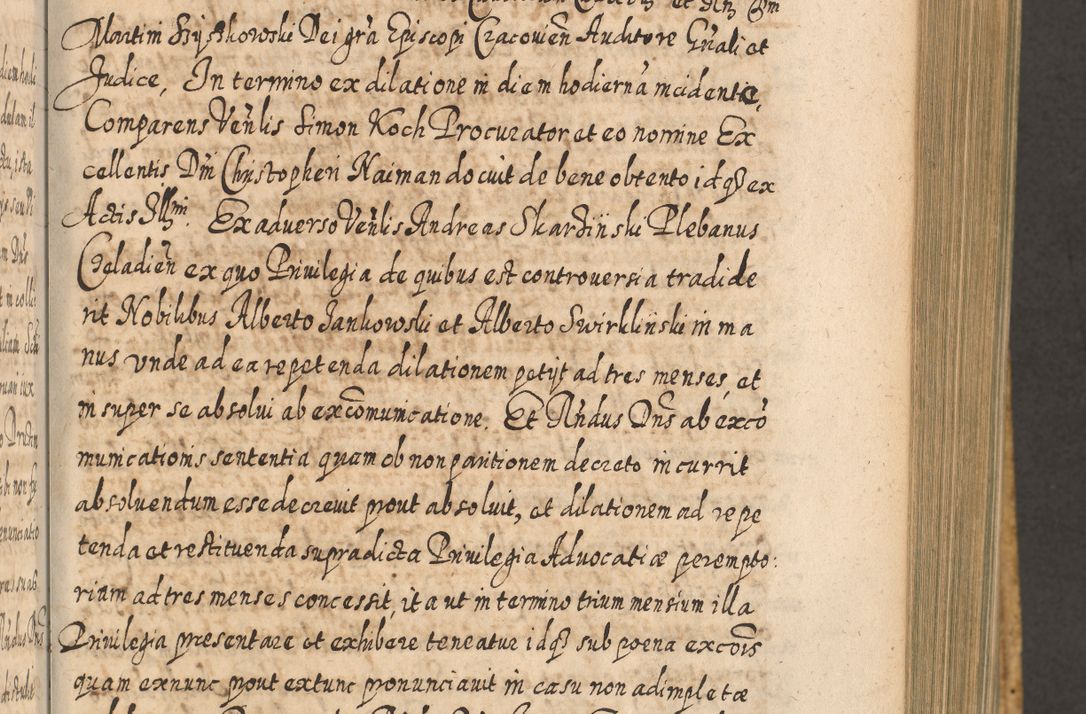 Martini Szyszkowski Dei grã Episcopi Cracovieñ Auditore Gñali et
Judice, In termino ex dilatione in diem hodiernã incidente,
Comparens Veñlis Simon Koch Procurator et eo nomine Ex
cellentis Dñi Christopheri Naiman docuit de bene obtento idq3 ex
Actis Illmi. Ex adverso Veñlis Andreas Skarzinski Plebanus
Czeladieñ ex quo Privilegia de quibus est controversia tradide
rit Nobilibus Alberto Jankowski et Alberto Swirklinski in ma
nus vnde ad ea repetenda dilationem petijt ad tres menses, et
insuper se absolui ab excõmunicatione. Et Rñdus Dñs ab excõ
municationis sententia quam ob non paritionem decreto incurrit
absoluendum esse decrevit prout absoluit, et dilationem ad repe
tenda et restituenda supradicta Privilegia Advocatiæ perempto:
riam ad tres menses concessit, ita ut in termino trium mensium illa
Privilegia præsentare et exhibere teneatur idq3 sub poena excõis
quam exnunc prout extunc pronunciavit in casu non adimpletæ